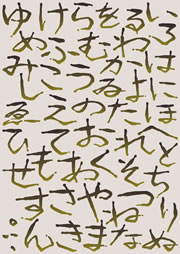 いろはにほへとちりぬ
るをわかよたれそつねな
らむうゐのおくやま
けふこえてあさき
ゆめみしゑひもせすん